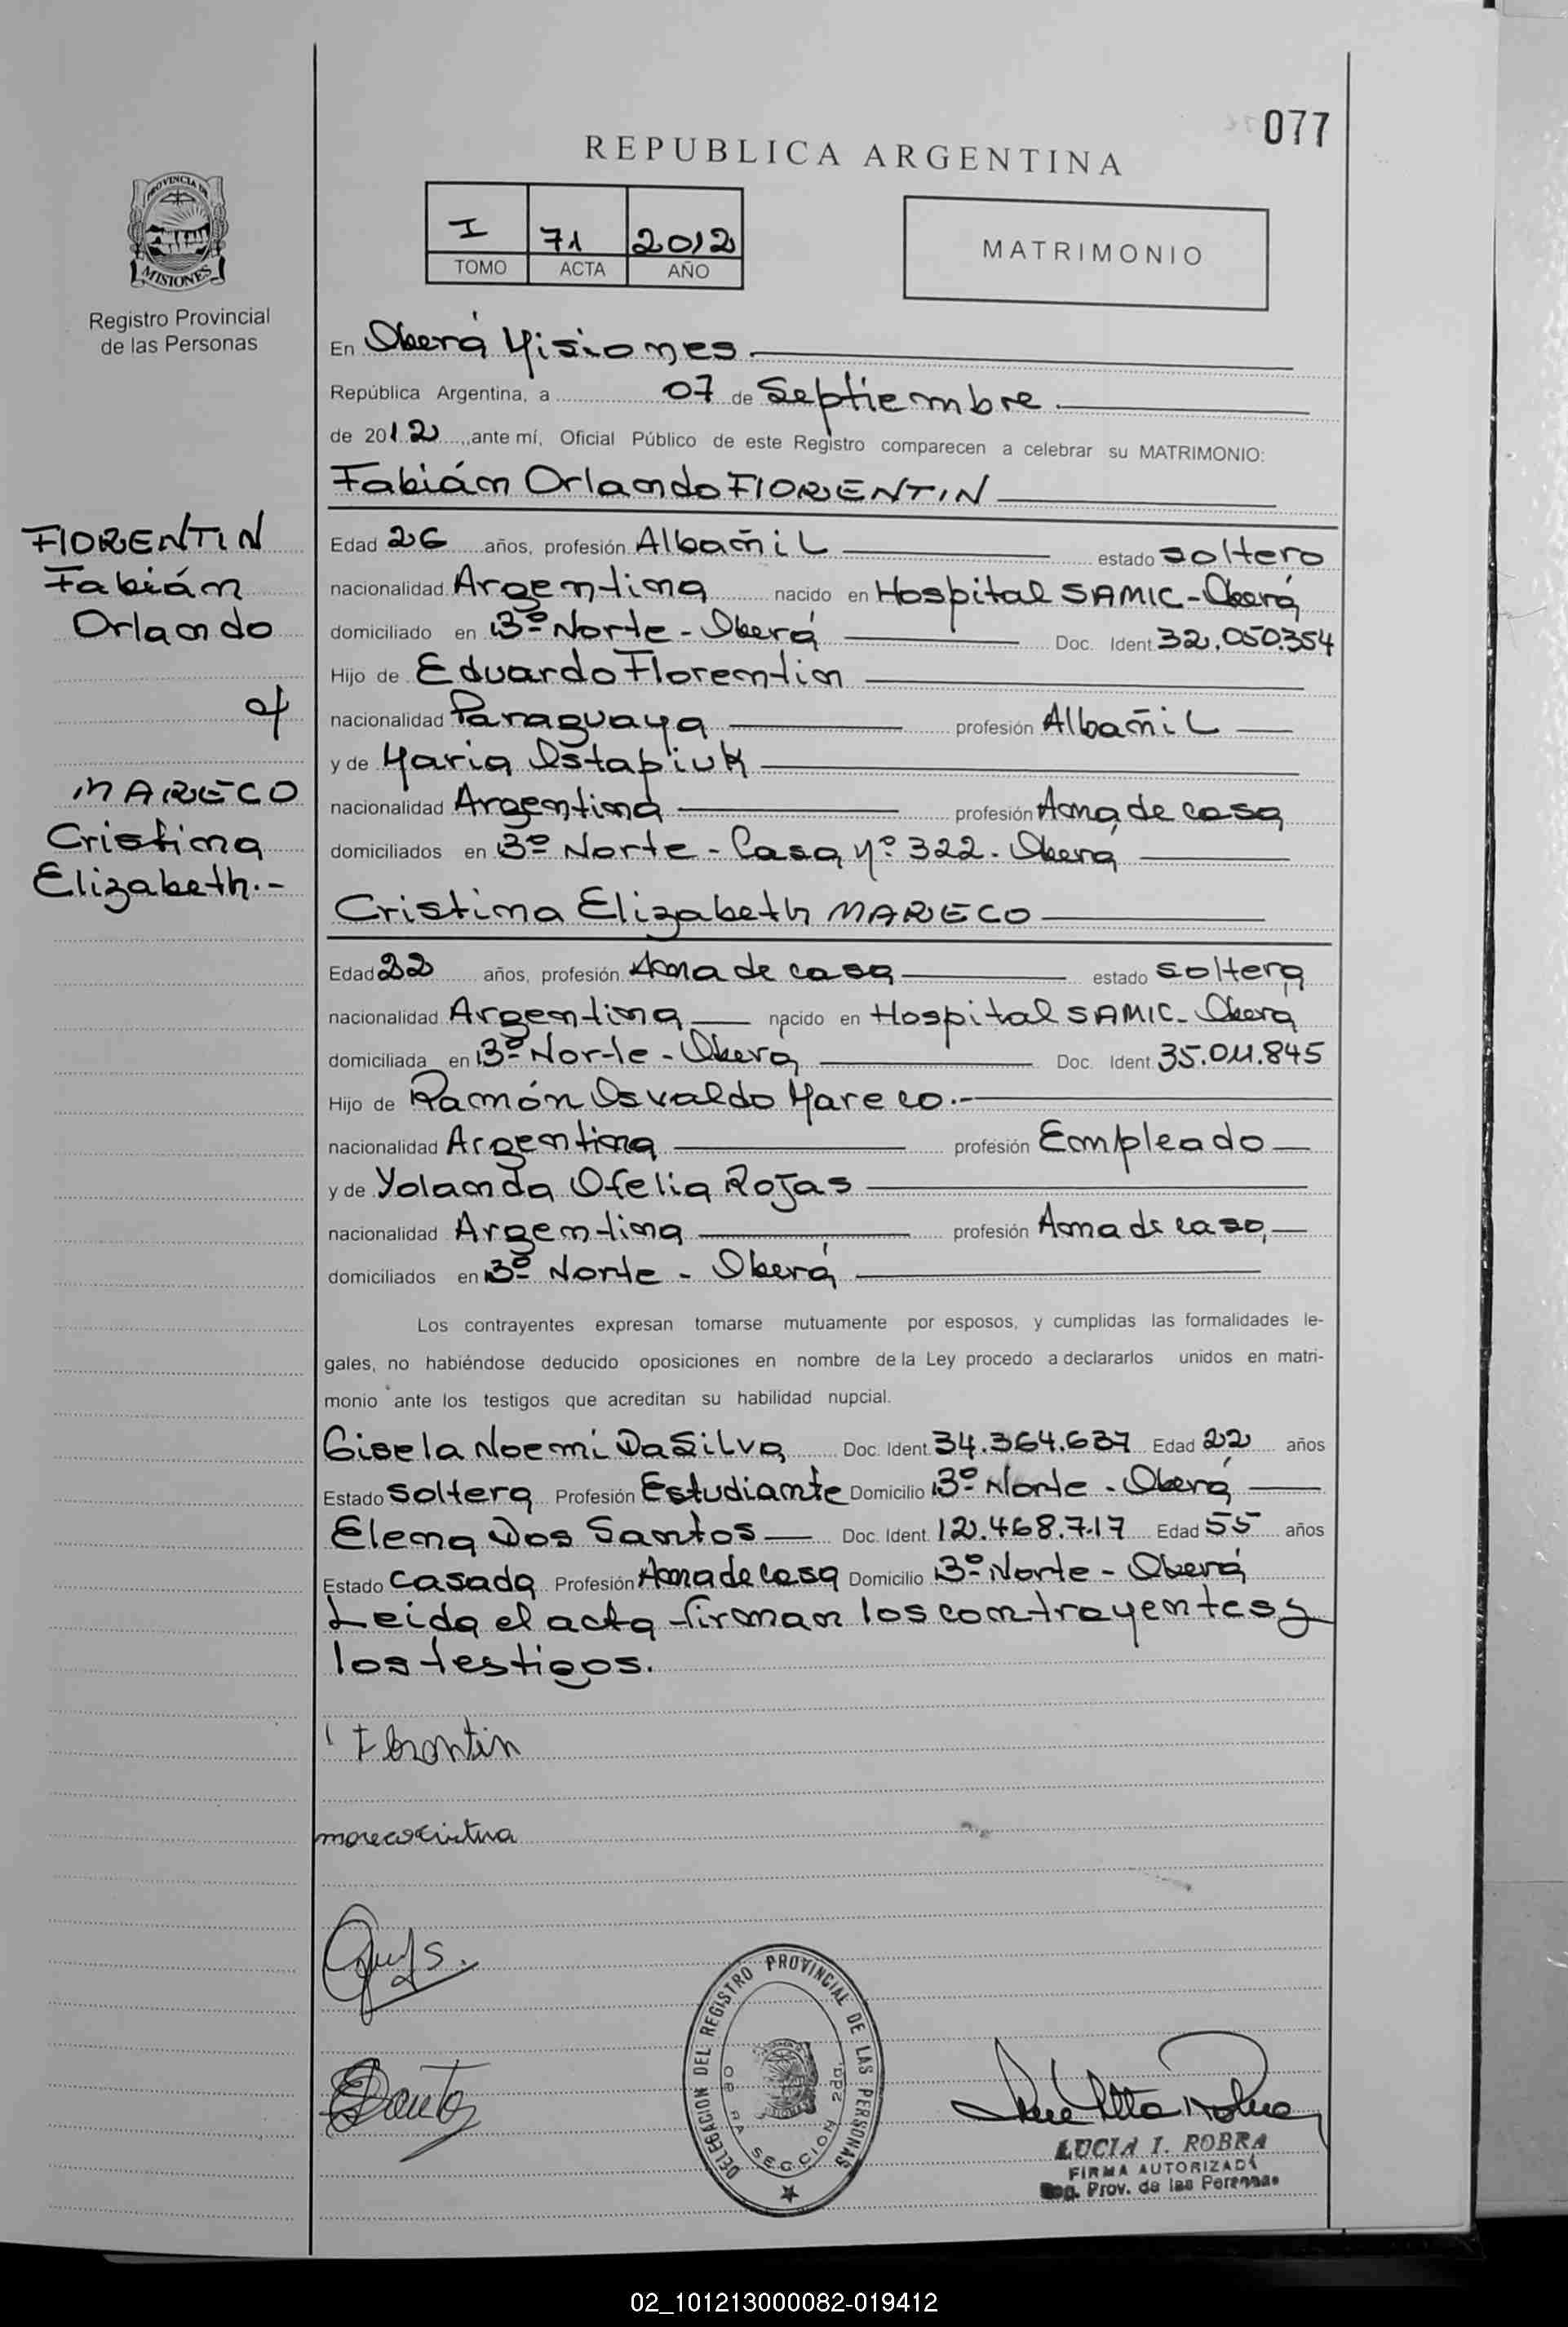 077
REPUBLICA ARGENTINA
I 71 2012
TOMO ACTA AÑO
MATRIMONIO
PROVINCIA DE
MISIONES
Registro Provincial
de las Personas
En Oberá Misiones
República Argentina, a 07 de Septiembre
de 2012, ante mí, Oficial Público de este Registro comparecen a celebrar su MATRIMONIO:
Fabián Orlando FlORENTIN
FlORENTIN
Fabián
Orlando
c/
MARECO
Cristina
Elizabeth.-
Edad 26 años, profesión Albañil estado soltero
nacionalidad Argentina nacido en Hospital SAMIC-Oberá
domiciliado en B° Norte - Oberá Doc. Ident. 32.050.354
Hijo de Eduardo Florentin
nacionalidad Paraguaya profesión Albañil
y de Maria Ostapiuk
nacionalidad Argentina profesión Ama de casa
domiciliados en B° Norte - Casa N° 322. Oberá
Cristina Elizabeth MARECO
Edad 22 años, profesión Ama de casa estado soltera
nacionalidad Argentina nacido en Hospital SAMIC- Oberá
domiciliada en B° Norte - Oberá Doc. Ident. 35.011.845
Hijo de Ramón Osvaldo Mareco.-
nacionalidad Argentina profesión Empleado
y de Yolanda Ofelia Rojas
nacionalidad Argentina profesión Ama de casa
domiciliados en B° Norte - Oberá
Los contrayentes expresan tomarse mutuamente por esposos, y cumplidas las formalidades le-
gales, no habiéndose deducido oposiciones en nombre de la Ley procedo a declararlos unidos en matri-
monio ante los testigos que acreditan su habilidad nupcial.
Gisela Noemí Da Silva Doc. Ident. 34.364.637 Edad 22 años
Estado Soltera Profesión Estudiante Domicilio B° Norte - Oberá
Elena Dos Santos Doc. Ident. 12.468.717 Edad 55 años
Estado Casada Profesión Ama de casa Domicilio B° Norte - Oberá
Leida el acta firman los contrayentes y
los testigos.
mareco cristina
DELEGACION DEL REGISTRO PROVINCIAL DE LAS PERSONAS
SECCION 2da.
LUCIA I. ROBRA
FIRMA AUTORIZADA
Reg. Prov. de las Personas
02_101213000082-019412